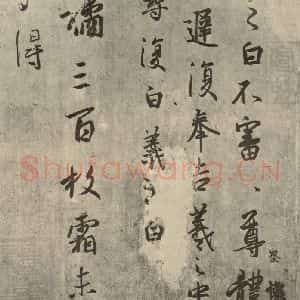 之白不審、尊體
遲復奉告羲之中
尋復白羲之白
橘三百枚霜未
得
Shufawang.CN